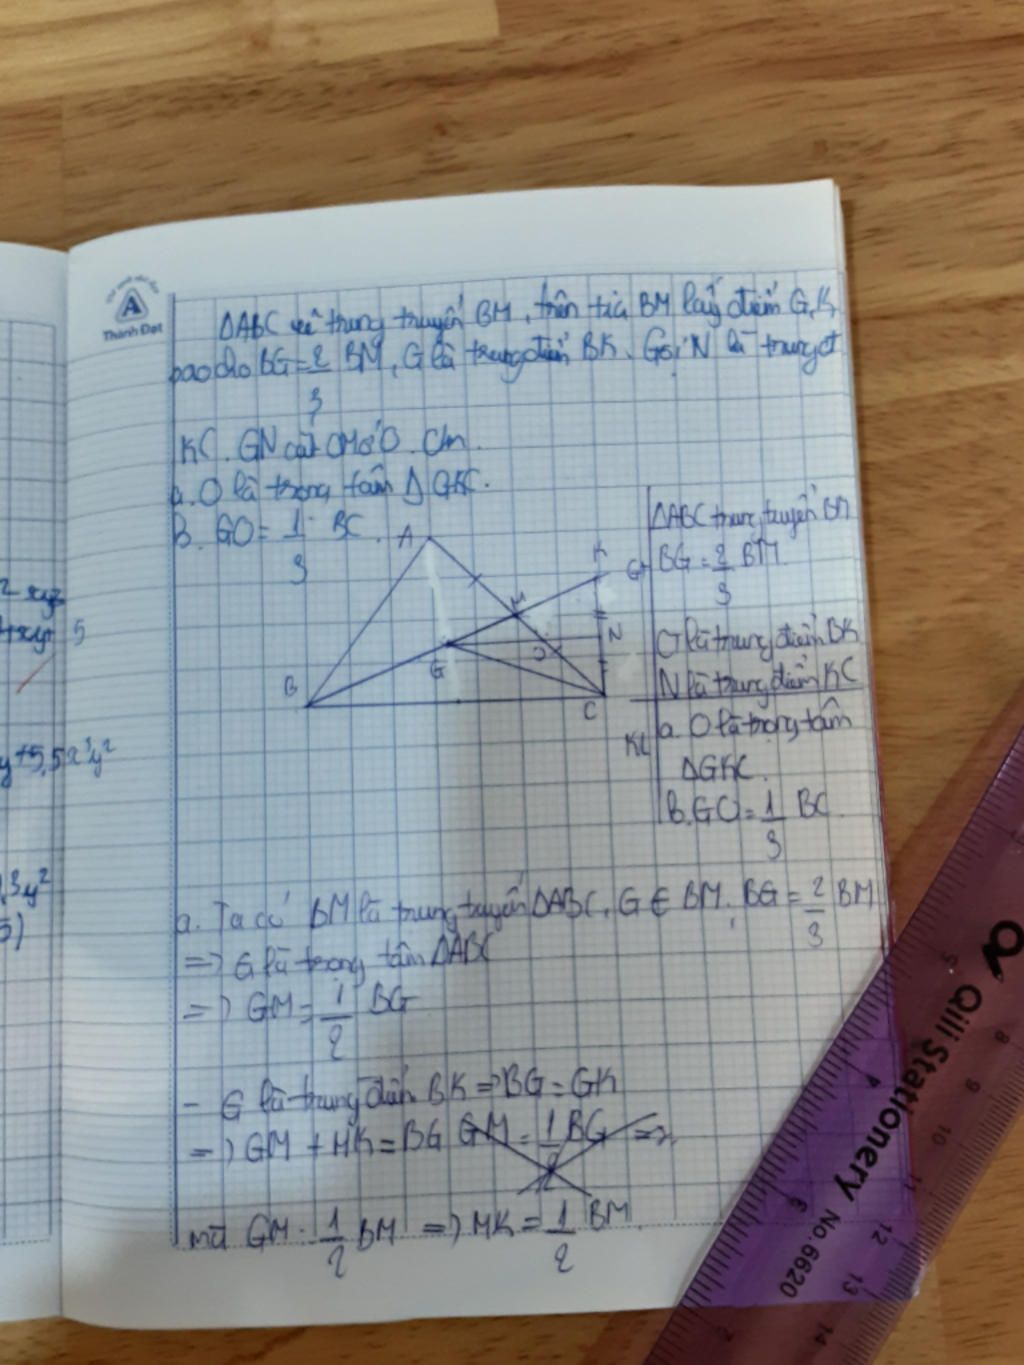 Thành Đạt
ΔABC vẽ trung truyến BM, trên tia BM lấy điểm G, K
sao cho BG = 2/3 BM, G là trung điểm BK. Gọi N là trung đ
KC. GN cắt CM ở O. Cm.
a. O là trọng tâm Δ GKC.
B. GO = 1/3 BC.
A
K
M
N
O
G
B
C
GT
ΔABC trung tuyến BM
BG = 2/3 BM.
G là trung điểm BK
N là trung điểm KC
KL
a. O là trọng tâm
ΔGKC.
B. GO = 1/3 BC.
a. Ta có BM là trung tuyến ΔABC, G ∈ BM, BG = 2/3 BM
=> G là trọng tâm ΔABC
=> GM = 1/2 BG
- G là trung điểm BK => BG = GK
=> GM + MK = BG GM = 1/2 BG =>
mà GM = 1/2 BM => MK = 1/2 BM.
2 xyz
+xy 5
y+5,5x³y²
,3y²
5)
Qili Stationery No.6620
5
4
3
2
8
9
10
11
12
13
14